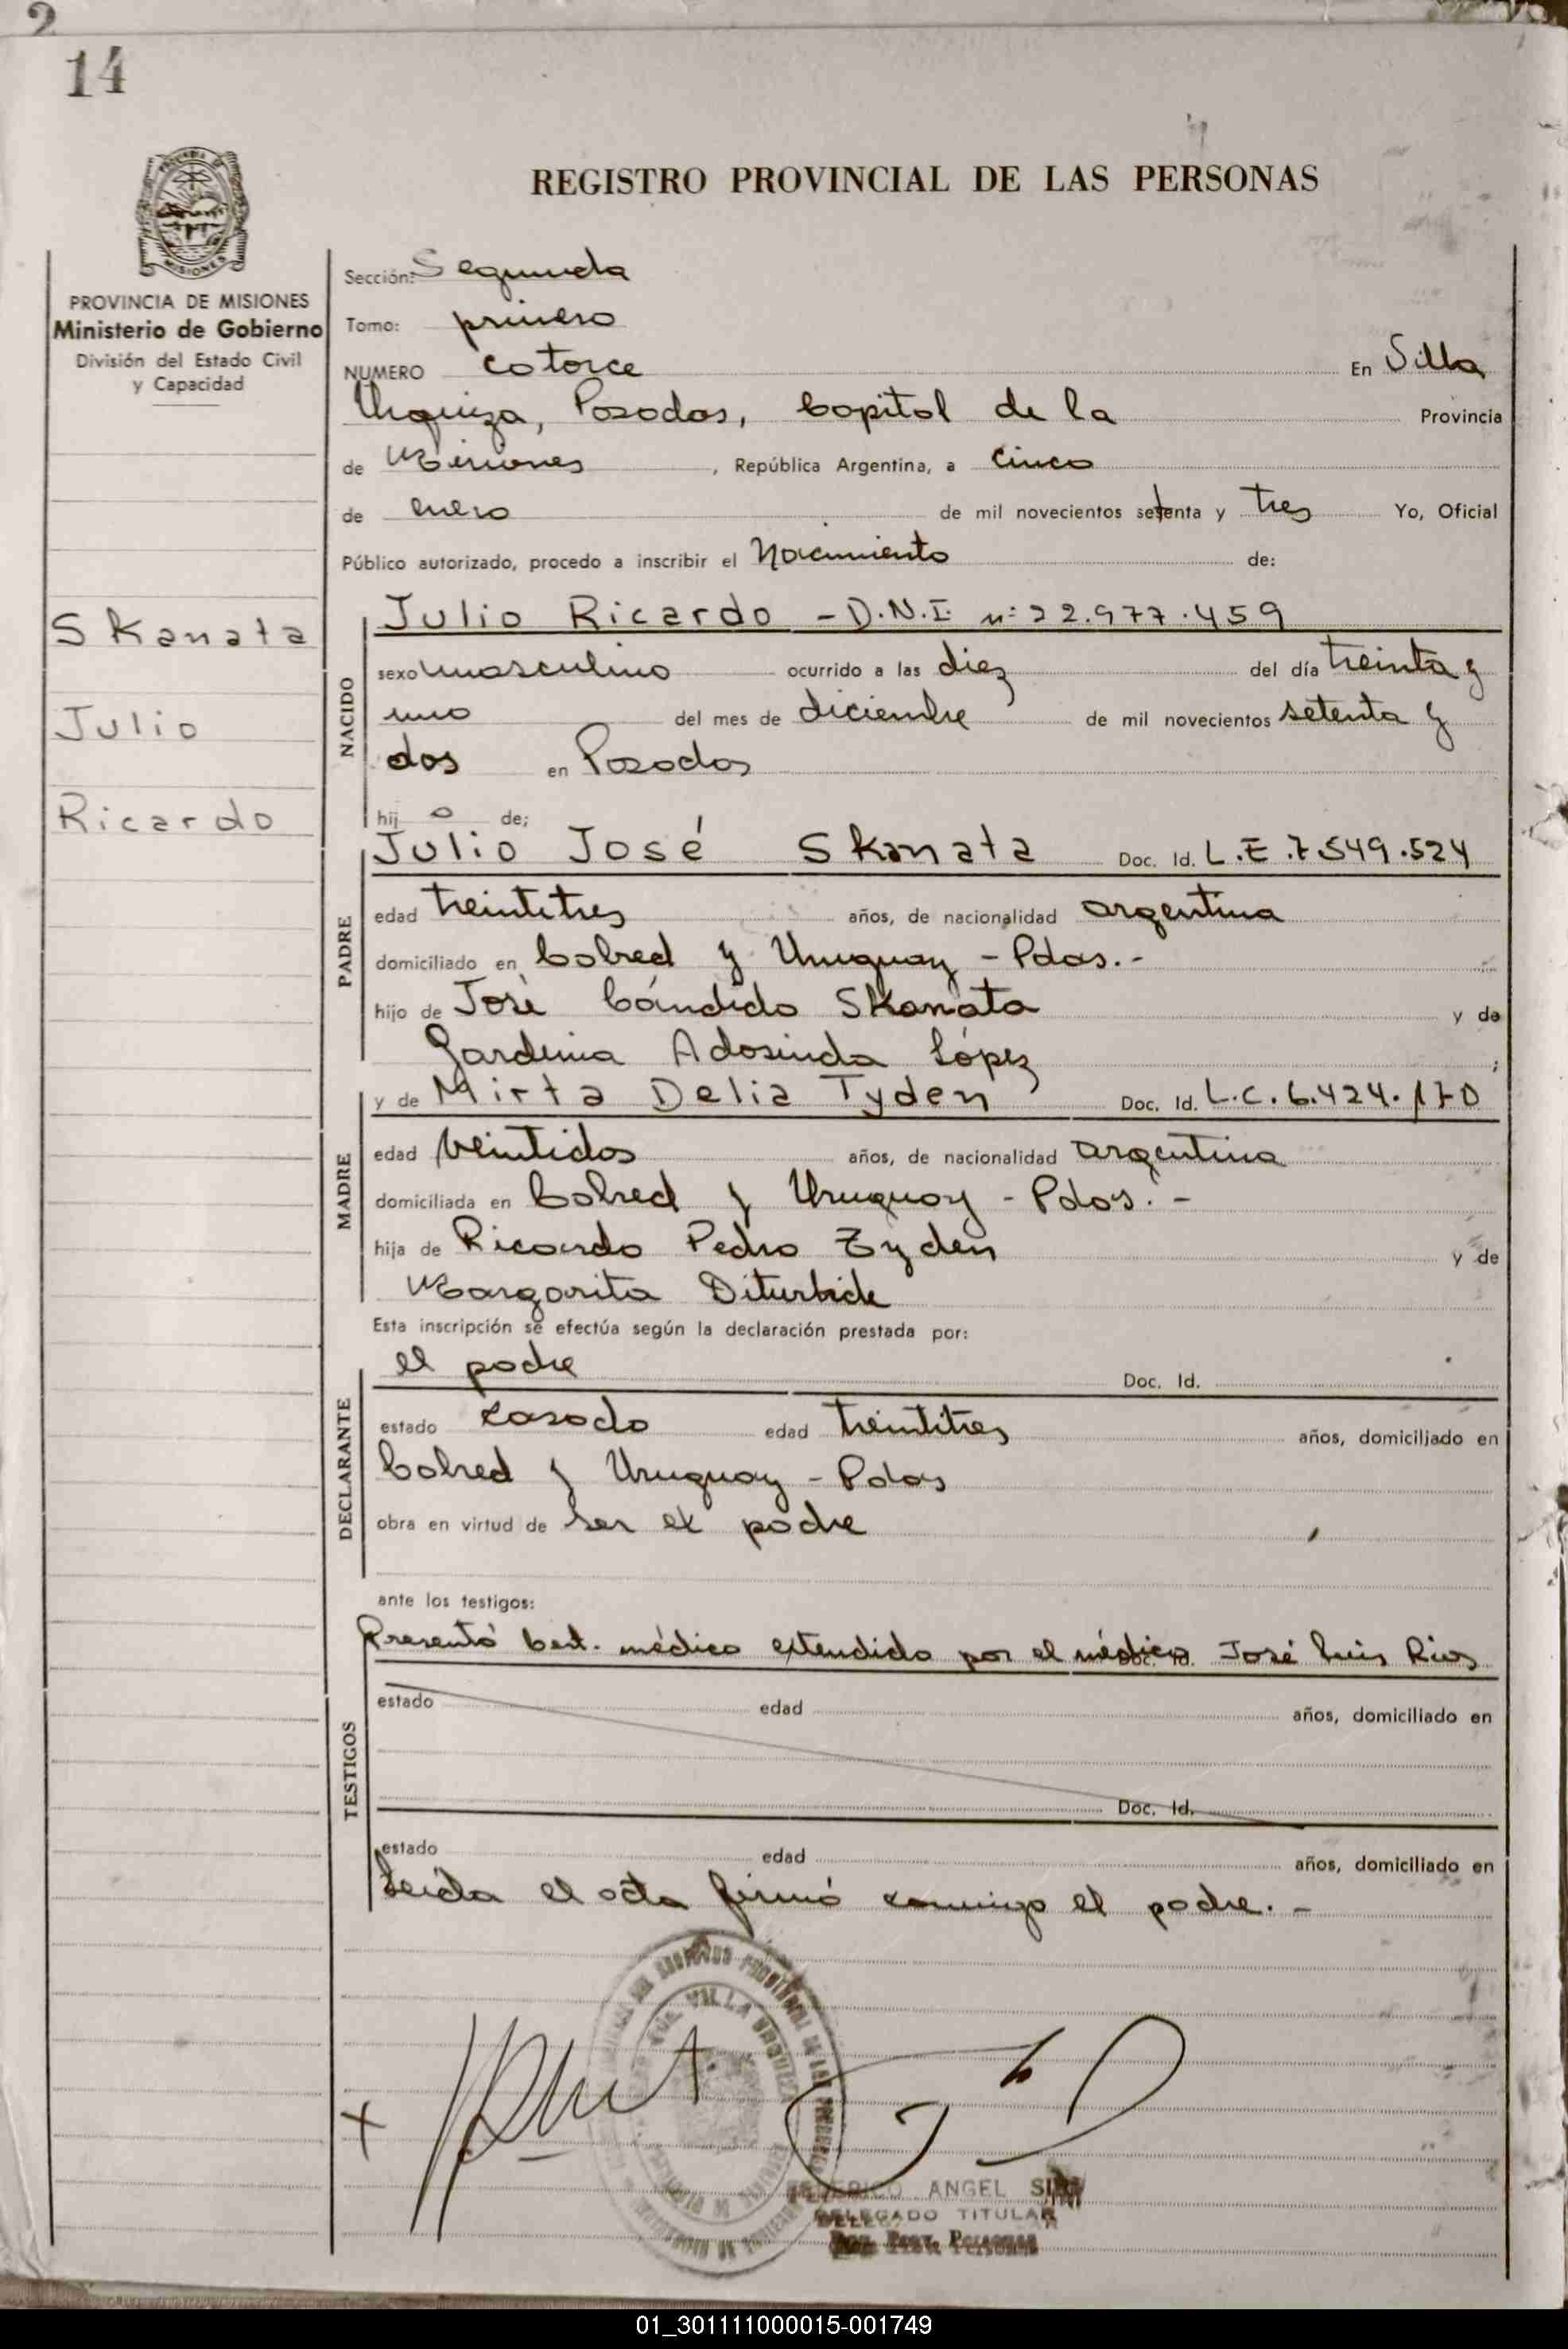 2
14
REGISTRO PROVINCIAL DE LAS PERSONAS
MISIONES
PROVINCIA DE MISIONES
Ministerio de Gobierno
División del Estado Civil
y Capacidad
Skanata
Julio
Ricardo
Sección: Segunda
Tomo: primero
NUMERO catorce En Villa
Urquiza, Posadas, Capital de la Provincia
de Misiones, República Argentina, a cinco
de enero de mil novecientos setenta y tres Yo, Oficial
Público autorizado, procedo a inscribir el Nacimiento de:
NACIDO
Julio Ricardo - D.N.I. nº 22.977.459
sexo masculino ocurrido a las diez del día treinta y
uno del mes de diciembre de mil novecientos setenta y
dos en Posadas
hij o de;
PADRE
Julio José Skanata Doc. Id. L.E. 7.549.524
edad treintitres años, de nacionalidad argentina
domiciliado en Colred y Uruguay - Pdas.-
hijo de José Cándido Skanata y de
Gardenia Adosinda López ;
MADRE
y de Mirta Delia Tyden Doc. Id. L.C. 6.424.170
edad veintidos años, de nacionalidad argentina
domiciliada en Colred y Uruguay - Pdas. -
hija de Ricardo Pedro Tyden y de
Margarita Diturbide
Esta inscripción se efectúa según la declaración prestada por:
DECLARANTE
el padre Doc. Id.
estado casado edad treintitres años, domiciliado en
Colred y Uruguay - Pdas
obra en virtud de ser el padre
ante los testigos:
TESTIGOS
Presentó Cert. médico extendido por el médico Doc. Id. José Luis Rios
estado edad años, domiciliado en
Doc. Id.
estado edad años, domiciliado en
Leída el acta firmó conmigo el padre. -
VILLA URQUIZA
FEDERICO ANGEL
DELEGADO TITULAR
01_301111000015-001749